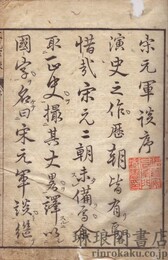 宋元軍談序
演史之作歴朝皆有
惜哉宋元二朝未備
取正史撮其大畧譯以
國字名曰宋元軍談継
琳琅閣書店